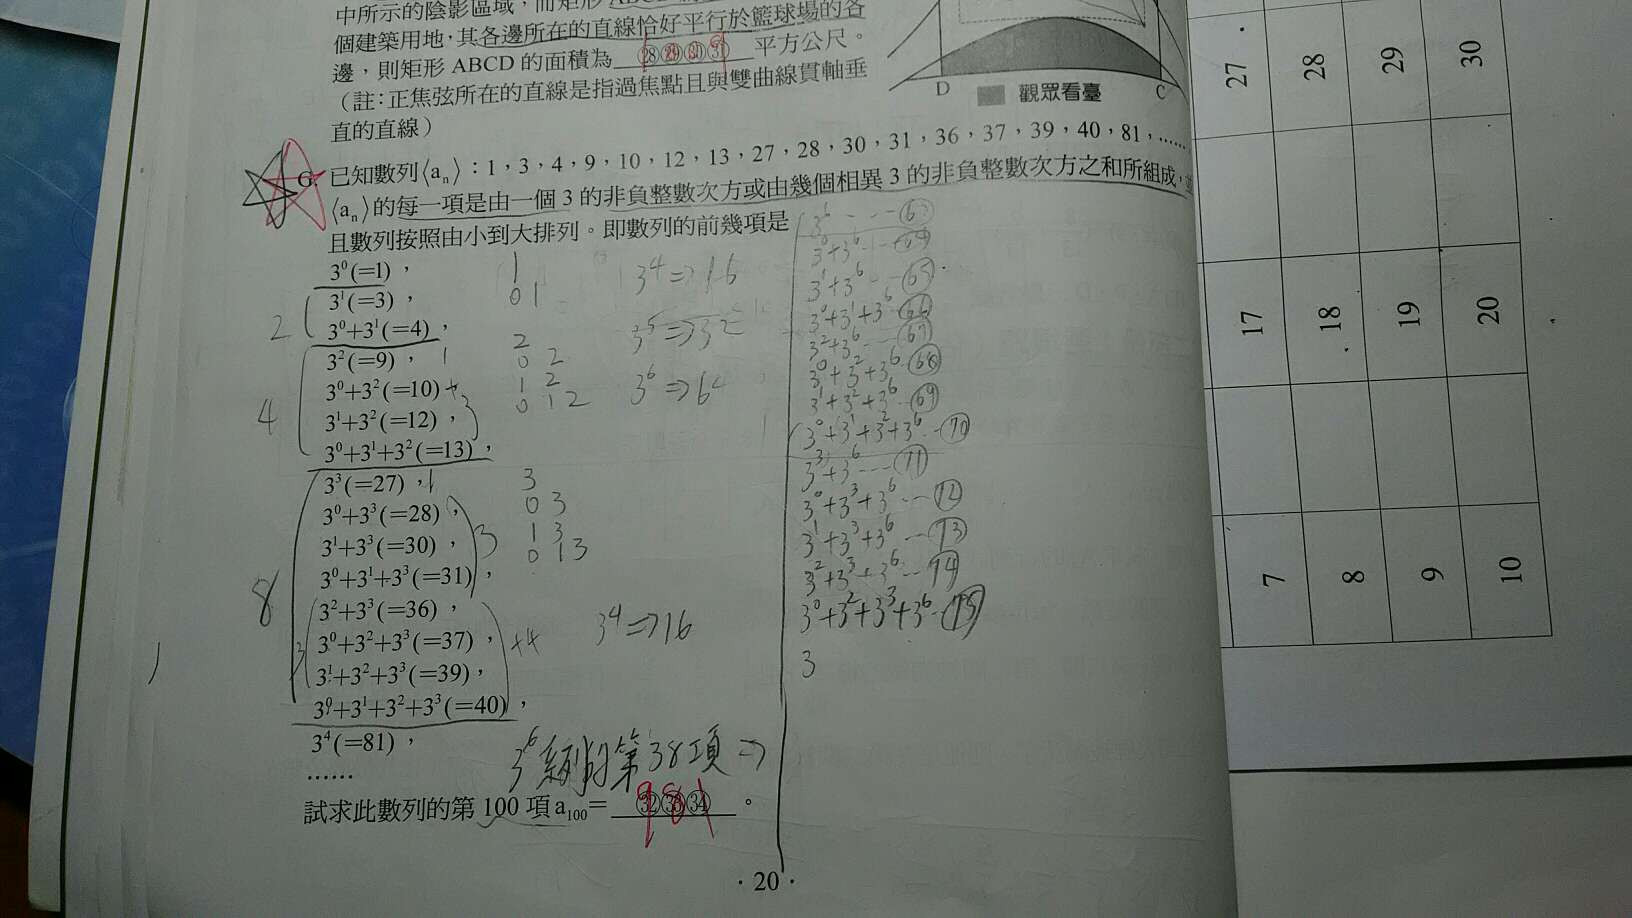 中所示的陰影區域，而矩形 ABCD
個建築用地，其各邊所在的直線恰好平行於籃球場的各
邊，則矩形 ABCD 的面積為 ㉘㉙㉚㉛ 平方公尺。
（註：正焦弦所在的直線是指過焦點且與雙曲線貫軸垂
直的直線）
D C
觀眾看臺
G. 已知數列⟨aₙ⟩：1，3，4，9，10，12，13，27，28，30，31，36，37，39，40，81，……
⟨aₙ⟩的每一項是由一個 3 的非負整數次方或由幾個相異 3 的非負整數次方之和所組成，
且數列按照由小到大排列。即數列的前幾項是
3⁰(=1)，
3¹(=3)，
3⁰+3¹(=4)，
3²(=9)，
3⁰+3²(=10)，
3¹+3²(=12)，
3⁰+3¹+3²(=13)，
3³(=27)，
3⁰+3³(=28)，
3¹+3³(=30)，
3⁰+3¹+3³(=31)，
3²+3³(=36)，
3⁰+3²+3³(=37)，
3¹+3²+3³(=39)，
3⁰+3¹+3²+3³(=40)，
3⁴(=81)，
……
試求此數列的第 100 項 a₁₀₀= ㉜㉝㉞ 。
981
2
4
8
1
0 1
2
0 2
1 2
0 1 2
3
0 3
1 3
0 1 3
3⁴⇒16
3⁵⇒32
3⁶⇒64
3⁴⇒16
+4
3⁶系列的第38項⇒
3⁶……63
3⁰+3⁶……64
3¹+3⁶……65
3⁰+3¹+3⁶ 66
3²+3⁶……67
3⁰+3²+3⁶ 68
3¹+3²+3⁶…69
3⁰+3¹+3²+3⁶…70
3³+3⁶……71
3⁰+3³+3⁶…72
3¹+3³+3⁶…73
3²+3³+3⁶…74
3⁰+3²+3³+3⁶…75
3
·20·
27 28 29 30
17 18 19 20
7 8 9 10